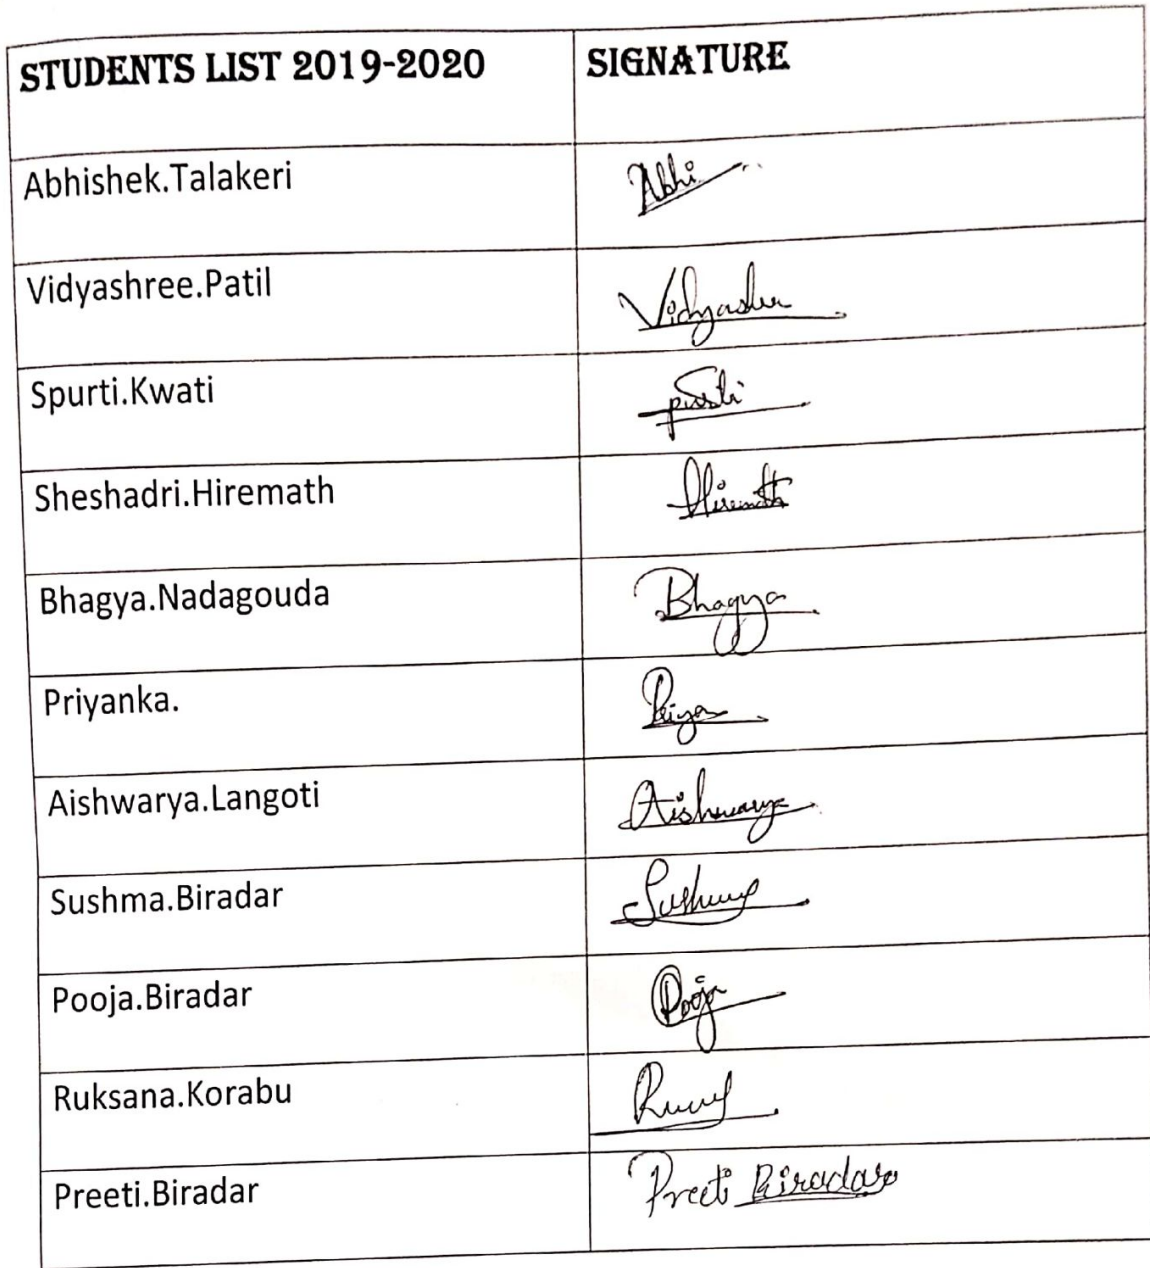 STUDENTS LIST 2019-2020 SIGNATURE
Abhishek.Talakeri Abhi
Vidyashree.Patil Vidyashree
Spurti.Kwati
Sheshadri.Hiremath Hiremath
Bhagya.Nadagouda Bhagya
Priyanka. Priya
Aishwarya.Langoti Aishwarya
Sushma.Biradar Sushma
Pooja.Biradar Pooja
Ruksana.Korabu
Preeti.Biradar Preeti Biradar